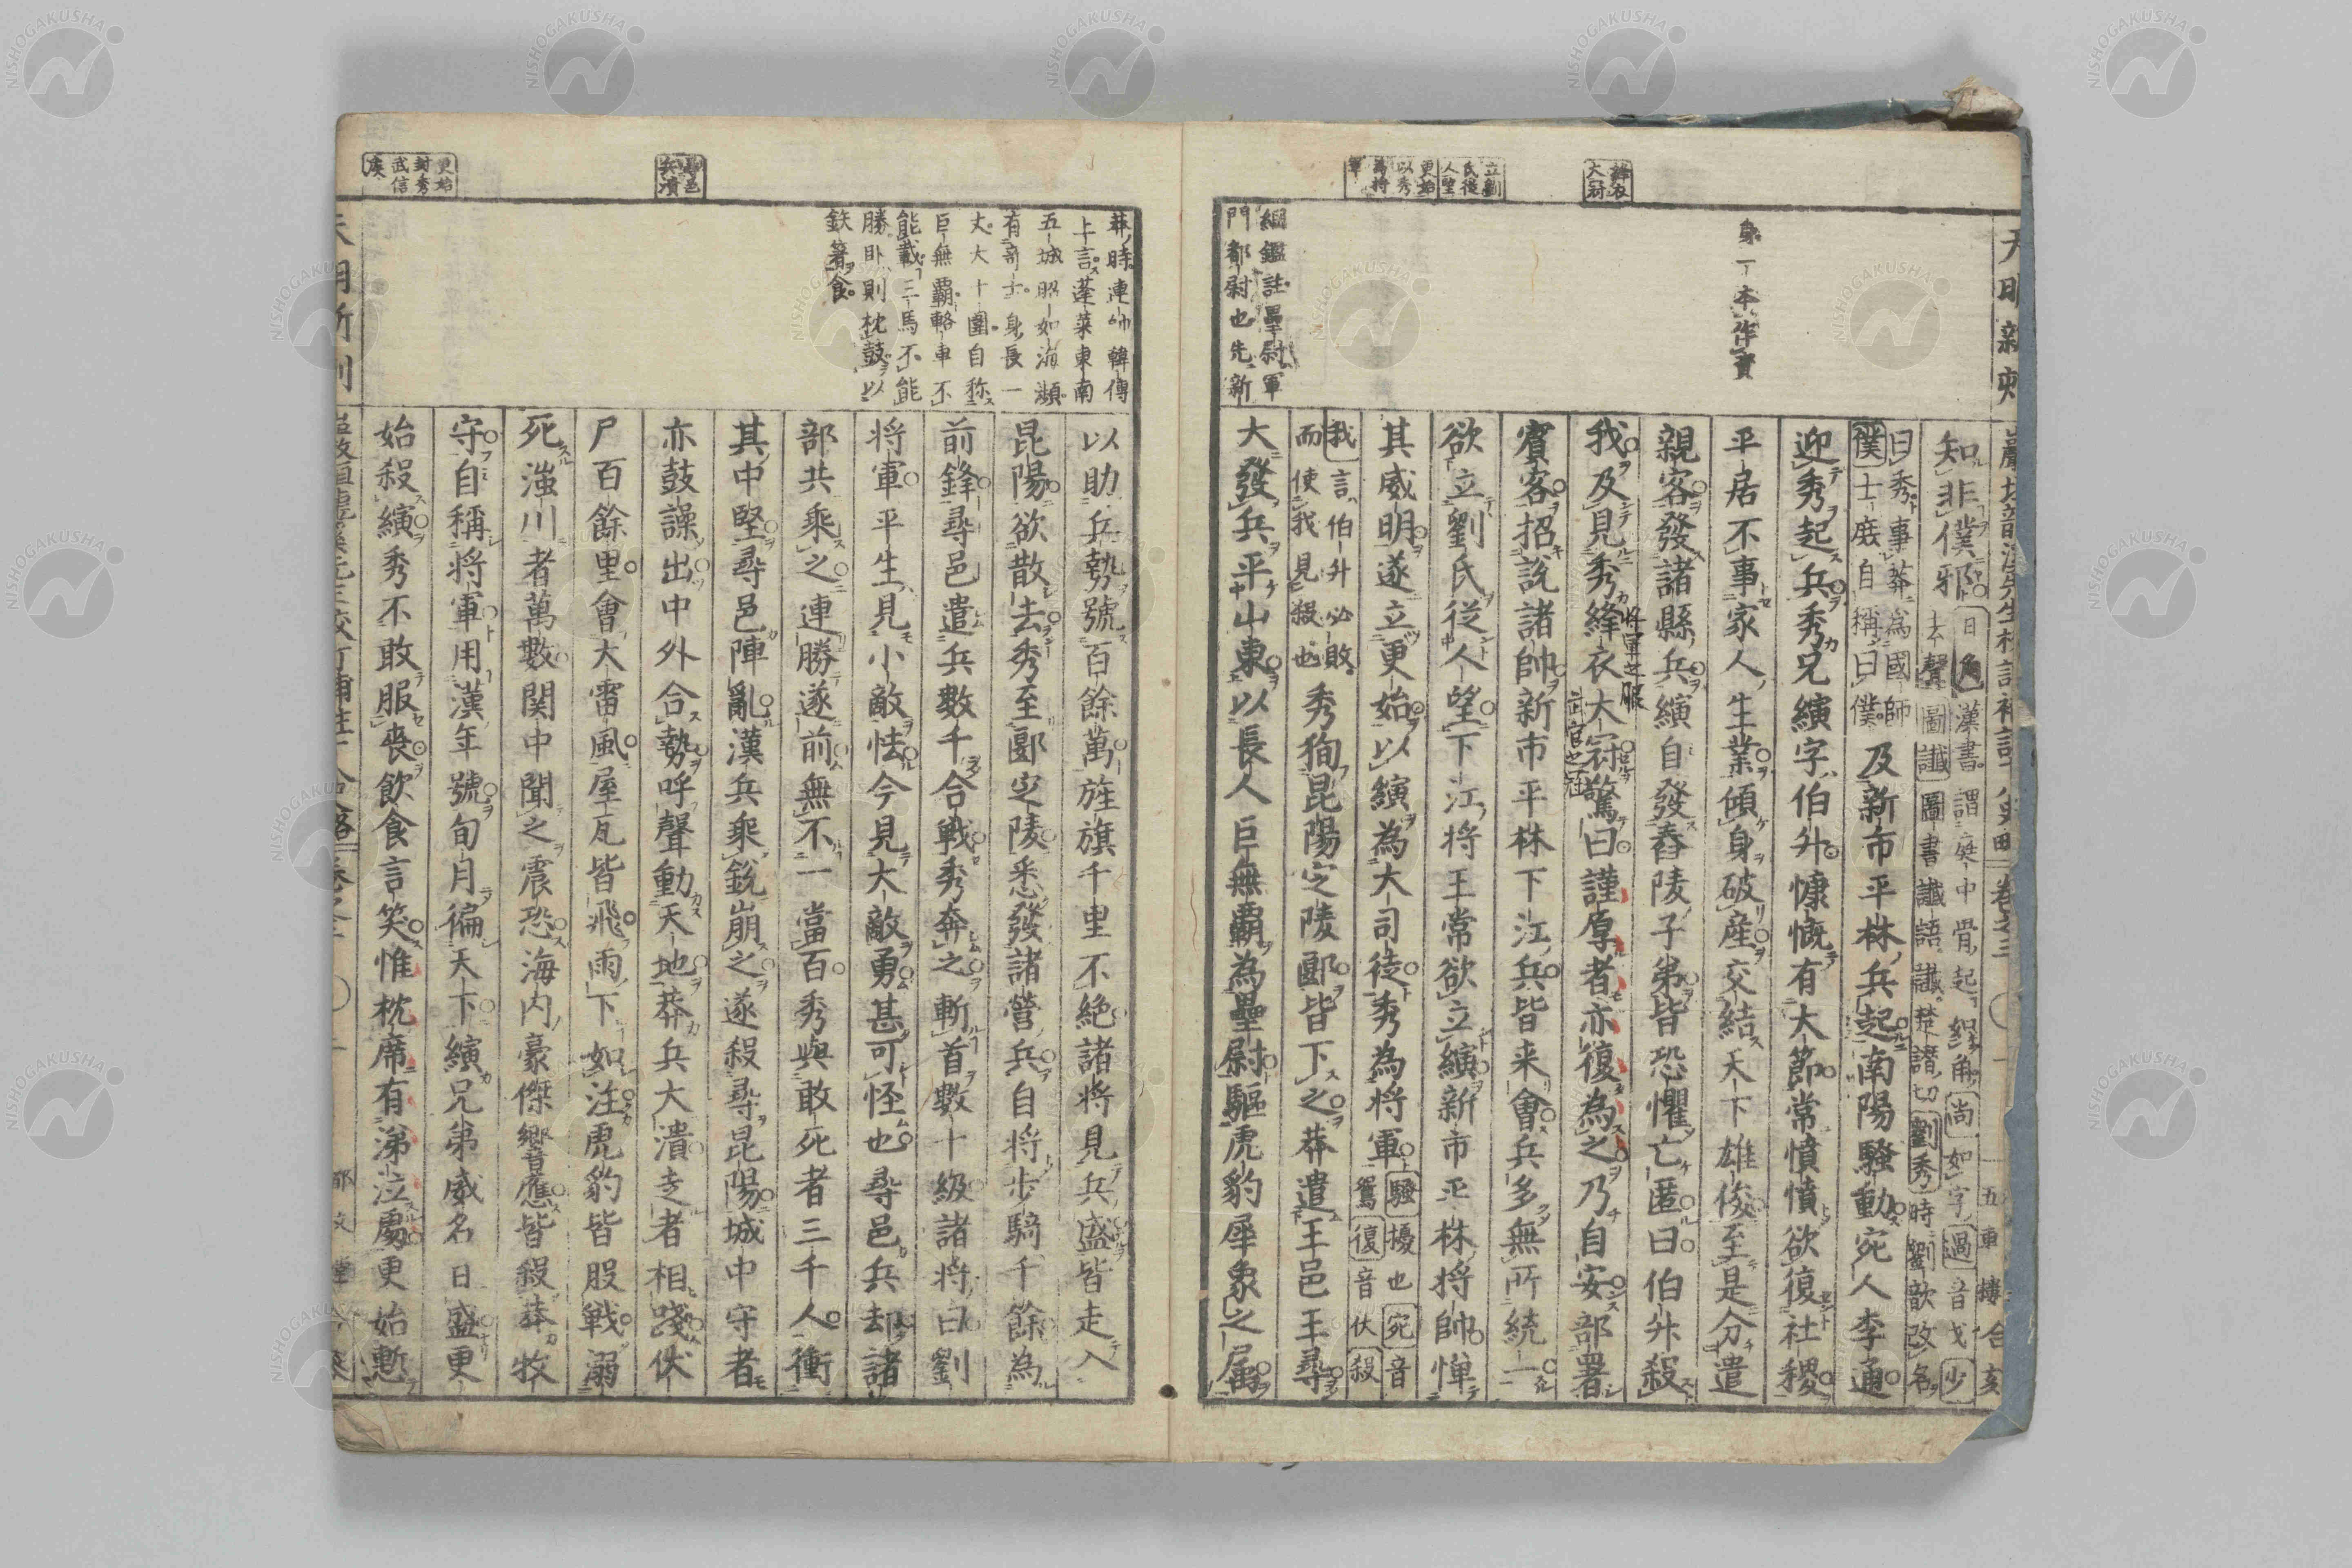 天明新刻
知非僕邪
日角漢書謂庭中骨起
尚如字過音戈少
去聲圖讖圖書讖語讖楚譖切劉秀時劉歆改名
曰秀事莽為國師
僕士庶自稱曰僕
及新市平林兵起南陽騷動宛人李通
迎秀起兵秀兄縯字伯升慷慨有大節常憤憤欲復社稷
平居不事家人生業傾身破產交結天下雄俊至是分遣
親客發諸縣兵縯自發舂陵子弟皆恐懼亡匿曰伯升殺
我及見秀絳衣大冠驚曰謹厚者亦復為之乃自安部署
將軍之服
武官之冠
賓客招說諸帥新市平林下江兵皆來會兵多無所統一
欲立劉氏從人望下江将王常欲立縯新市平林将帥憚
其威明遂立更始以縯為大司徒秀為将軍
騷擾也宛音
鴛復音伏殺
我言伯升必敗
而使我見殺也
秀狥昆陽定陵郾皆下之莽遣王邑王尋
大發兵平山東以長人巨無霸為壘尉驅虎豹犀象之屬
身一本作賣
綱鑑註壘尉軍
門都尉也先新
絳衣大冠
立劉氏從人望
更始以秀為将軍
五車樓合亥
以助兵勢號百餘萬旌旗千里不絶諸将見兵盛皆走入
昆陽欲散去秀至郾定陵悉發諸營兵自将步騎千餘為
前鋒尋邑遣兵數千合戰秀奔之斬首數十級諸将曰劉
将軍平生見小敵怯今見大敵勇甚可怪也尋邑兵却諸
部共乘之連勝遂前無不一當百秀與敢死者三千人衝
其中堅尋邑陣亂漢兵乘銳崩之遂殺尋昆陽城中守者
亦鼓譟出中外合勢呼聲動天地莽兵大潰走者相踐伏
尸百餘里會大雷風屋瓦皆飛雨下如注虎豹皆股戰溺
死滍川者萬數関中聞之震恐海内豪傑響應皆殺莽牧
守自稱将軍用漢年號旬月徧天下縯兄弟威名日盛更
始殺縯秀不敢服喪飲食言笑惟枕席有涕泣處更始慙
莽時連帥韓傳
上言蓬莱東南
五城昭如海瀕
有竒士身長一
丈大十圍自称
巨無覇軺車不
能載三馬不能
勝卧則枕鼓以
鉄箸食
尋邑兵潰
更始封秀武信侯